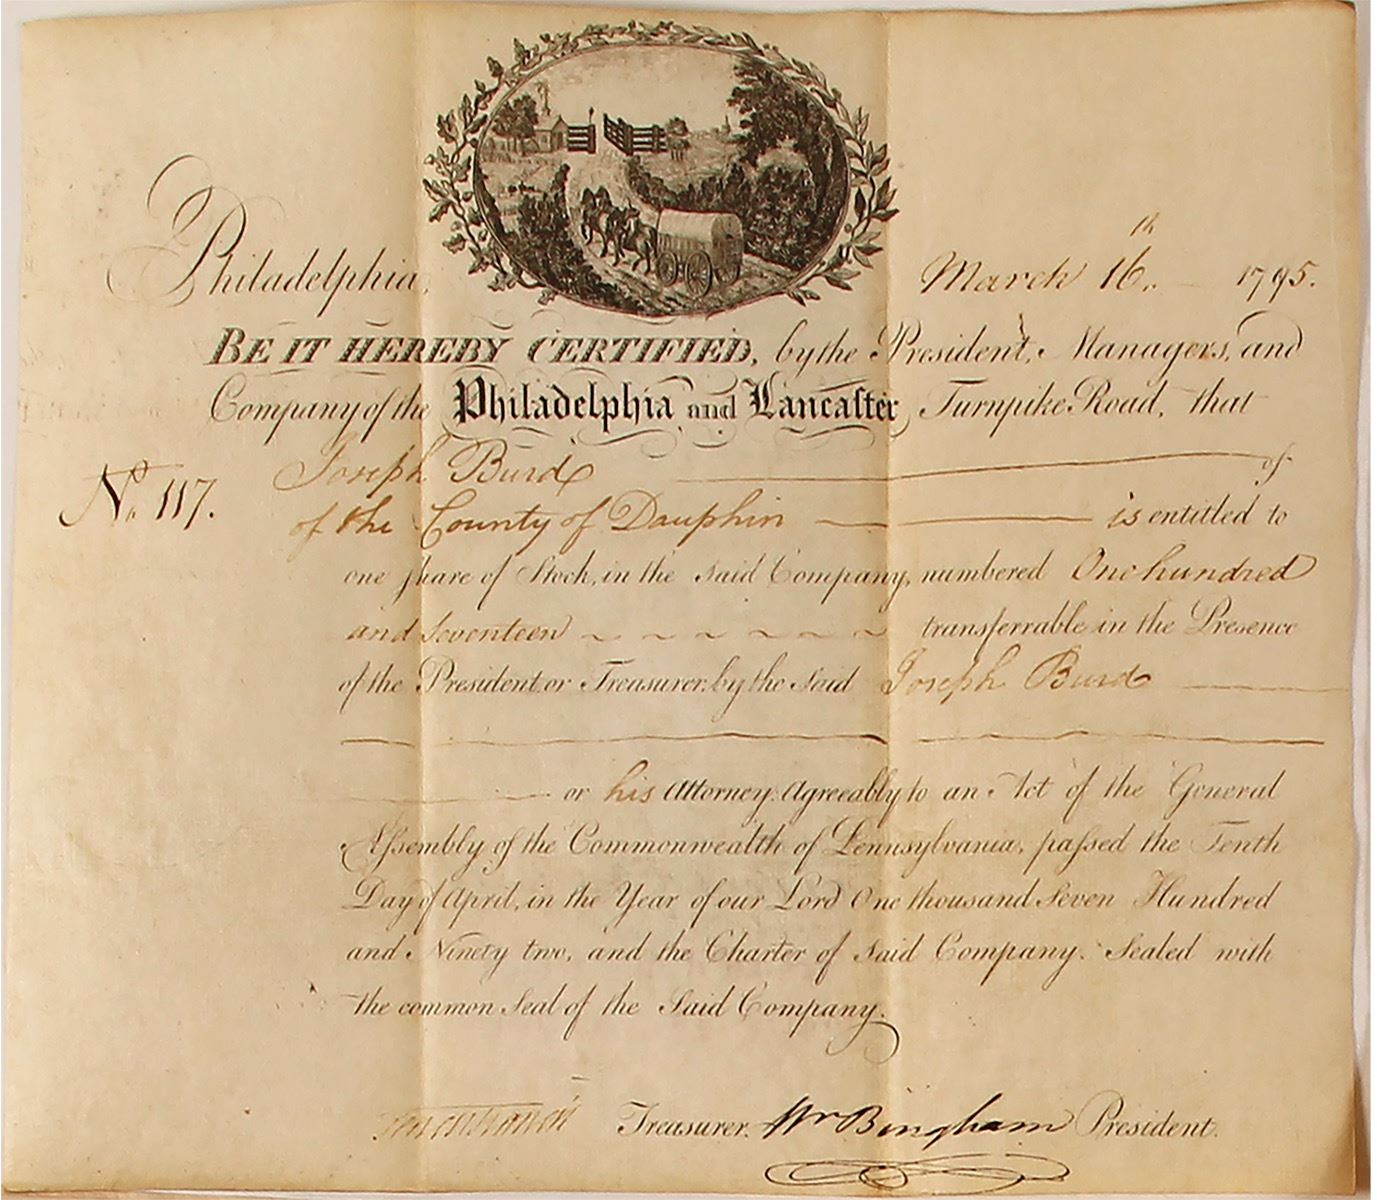 Philadelphia, March 16th. 1795.
BE IT HEREBY CERTIFIED, by the President, Managers, and
Company of the Philadelphia and Lancaster Turnpike Road, that
Joseph Burd of
No. 117.
of the County of Dauphin is entitled to
one share of Stock, in the said Company, numbered One hundred
and Seventeen ~ ~ ~ ~ ~ ~ transferrable in the Presence
of the President or Treasurer, by the Said Joseph Burd
or his Attorney. Agreeably to an Act of the General
Assembly of the Commonwealth of Pennsylvania, passed the Tenth
Day of April, in the Year of our Lord One thousand Seven Hundred
and Ninety two, and the Charter of said Company. Sealed with
the common Seal of the Said Company.
Treasurer. Wm Bingham President.